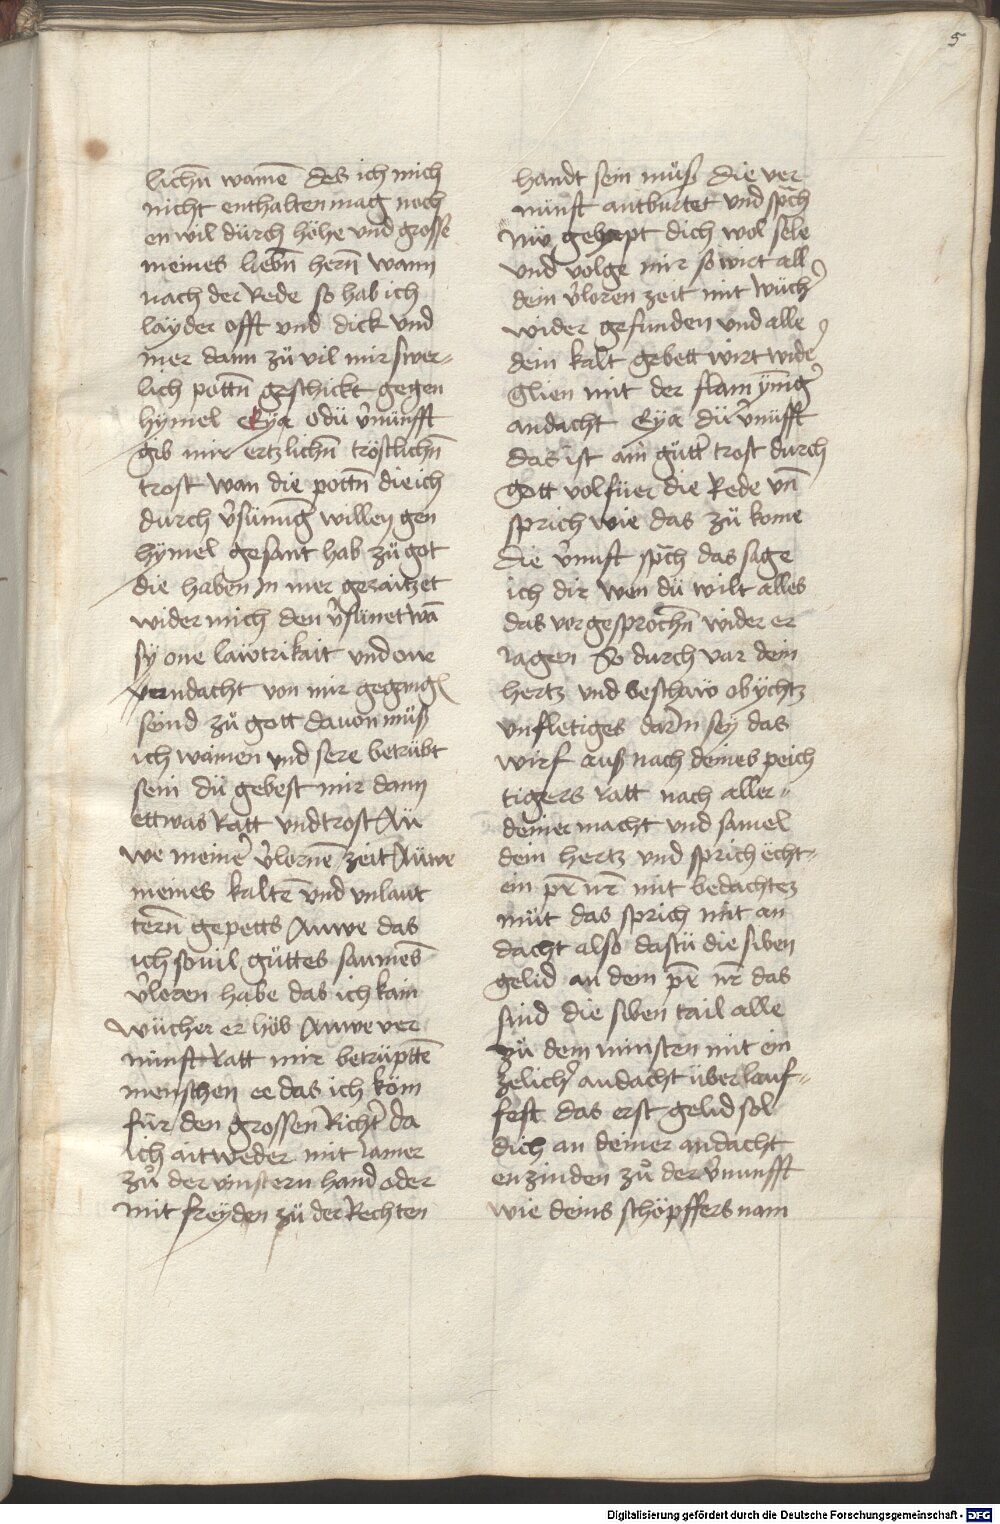 5
lichn̄ wainē des ich mich
nicht enthalten mag noch
en wil dürch höhe vnd grosse
meines liebn̄ hern̄ wann
nach der Rede so hab ich
layder offt vnd dick vnd
mer dann zü vil mir swer=
lich pottn̄ geschickt gegen
hÿmel Eya o dü v̉nünfft
gib mir ertzlichn̄ tröstlichn̄
trost wan die pottn̄ die ich
durch v̉sünūg willen gen
hÿmel gesant hab zü got
die haben Jn mer geraitzet
wider mich den v̉sünet wā
sÿ one lawtrikait vnd one
andacht von mir geganḡ
seind zü gott dauon müß
ich wainen vnd sere betrübt
sein dü gebest mir dann
ettwas Ratt vnd trost Aü
we meiner̉ v̉lornē zeit Aüwe
meines kaltē vnd vnlaut
tern̄ gepetts Auwe das
ich souil güttes samēs
v̉loren habe das ich kain
wücher er höb Auwe ver
nünft ratt mir betrüptē
menschen ee das ich köm
für den grossen Richt̉ da
ich aitweder mit iamer
zů der vinstern hand oder
mit freÿden zü der Rechten
handt sein müß die ver
nünft antburtet vnd sp̄ch
nü gehapt dich wol sele
vnd volge mir so wirt all
dein v̉loren zeit mit wüch̉
wider gefunden vnd alle
dein kalt gebett wirt widẻ
glien mit der flam ÿnīg̉
andacht Eÿa dü v̉nüfft
das ist ain gütt̉ trost durch
gott volfüer die Rede vn̄
sprich wie das zü kome
die v̉nuft sp̄ch das sage
ich dir wen dü wilt alles
das vorgesprochn̄ wider er
iagen So durch var dein
hertz vnd beschaw ob ÿchtz
vnfletiges dar̉n seÿ das
wirf aus nach deines peich
tigers ratt nach aller=
deiner macht vnd samel
dein hertz vnd sprich echt=
ein pr̄ nr̄ mit bedachtez
müt das sprich mit an
dacht also dastü die siben
gelid an dem pr̄ nr̄ das
sind die siben tail alle
zü dem minsten mit ein
zelich̉ andacht überlauf=
fest das erst gelid sol
dich an deiner andacht
enzinden zů der v̉nunfft
wie deins schöpffers nam
Digitalisierung gefördert durch die Deutsche Forschungsgemeinschaft - DFG